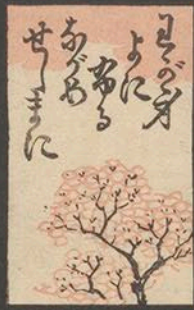 わが身
よに
ふる
ながめ
せしまに